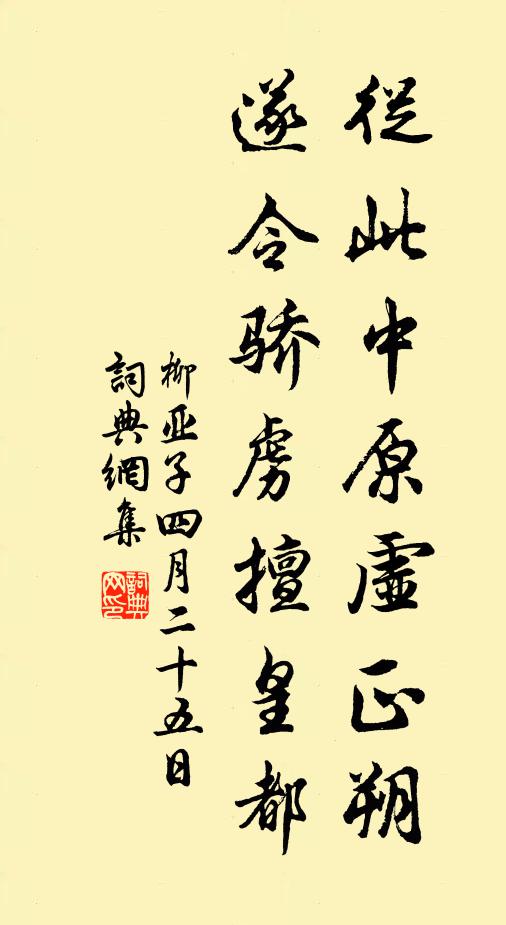 從此中原虛正朔
遂令骄虏擅皇都
柳亚子四月二十五日
詞典網集
詞典网印